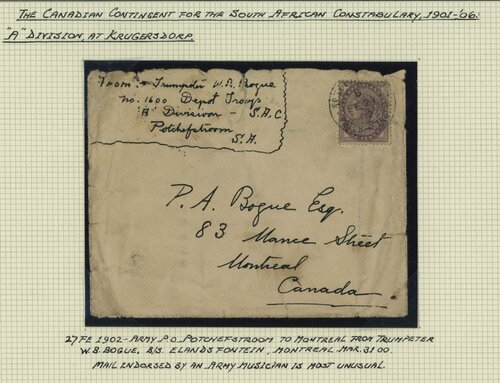 THE CANADIAN CONTINGENT FOR THE SOUTH AFRICAN CONSTABULARY, 1901-'06:
"A" DIVISION, AT KRUGERSDORP.
From:- Trumpeter W.B. Bogue
No. 1600 Depot Troop
"A" Division - S.A.C
Potchefstroom
S.A.
P. A. Bogue Esq.
83 Mance Street
Montreal
Canada
27 FE 1902 - ARMY P.O. POTCHEFSTROOM TO MONTREAL FROM TRUMPETER
W.B. BOGUE, B/S. ELANDSFONTEIN, MONTREAL MAR.31 00.
MAIL ENDORSED BY AN ARMY MUSICIAN IS MOST UNUSUAL.